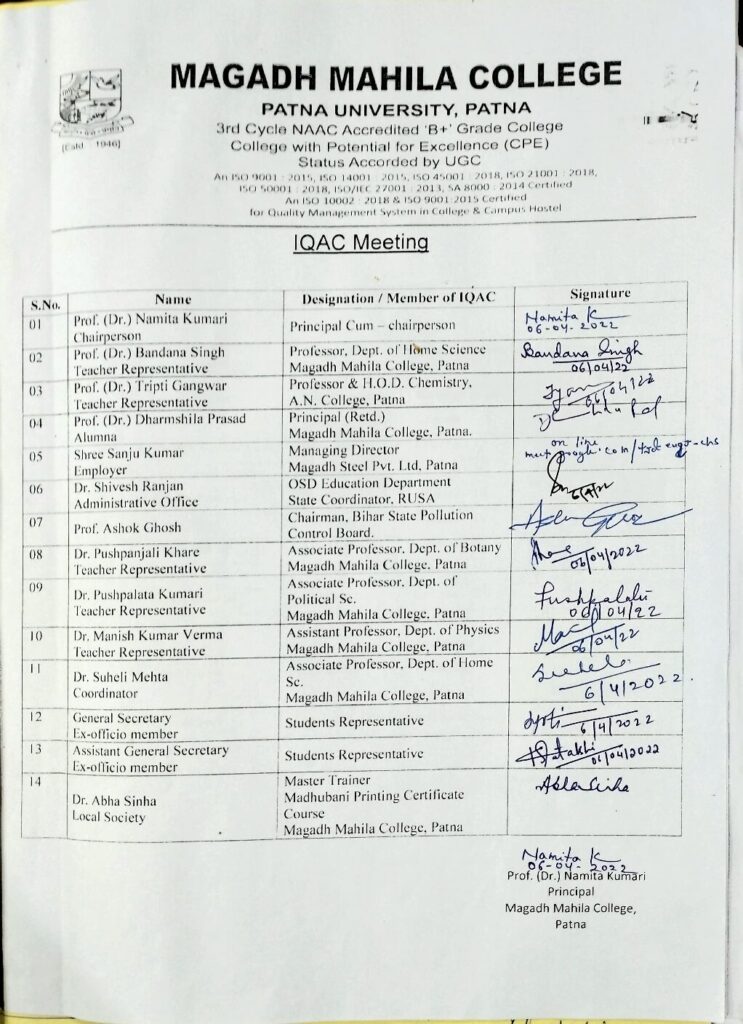 MAGADH MAHILA COLLEGE
PATNA UNIVERSITY, PATNA
3rd Cycle NAAC Accredited 'B+' Grade College
College with Potential for Excellence (CPE)
Status Accorded by UGC
An ISO 9001 : 2015, ISO 14001 : 2015, ISO 45001 : 2018, ISO 21001 : 2018,
ISO 50001 : 2018, ISO/IEC 27001 : 2013, SA 8000 : 2014 Certified
An ISO 10002 : 2018 & ISO 9001:2015 Certified
for Quality Management System in College & Campus Hostel
[Estd. - 1946]
IQAC Meeting
S.No. Name Designation / Member of IQAC Signature
01 Prof. (Dr.) Namita Kumari
Chairperson
Principal Cum – chairperson
Namita K
06-04-2022
02 Prof. (Dr.) Bandana Singh
Teacher Representative
Professor, Dept. of Home Science
Magadh Mahila College, Patna
Bandana Singh
06/04/22
03 Prof. (Dr.) Tripti Gangwar
Teacher Representative
Professor & H.O.D. Chemistry,
A.N. College, Patna
06/04/22
04 Prof. (Dr.) Dharmshila Prasad
Alumna
Principal (Retd.)
Magadh Mahila College, Patna.
05 Shree Sanju Kumar
Employer
Managing Director
Magadh Steel Pvt. Ltd, Patna
on line
06 Dr. Shivesh Ranjan
Administrative Office
OSD Education Department
State Coordinator, RUSA
07 Prof. Ashok Ghosh
Chairman, Bihar State Pollution
Control Board.
08 Dr. Pushpanjali Khare
Teacher Representative
Associate Professor, Dept. of Botany
Magadh Mahila College, Patna
06/04/2022
09 Dr. Pushpalata Kumari
Teacher Representative
Associate Professor, Dept. of
Political Sc.
Magadh Mahila College, Patna
Pushpalata
06/04/22
10 Dr. Manish Kumar Verma
Teacher Representative
Assistant Professor, Dept. of Physics
Magadh Mahila College, Patna
06/04/22
11 Dr. Suheli Mehta
Coordinator
Associate Professor, Dept. of Home
Sc.
Magadh Mahila College, Patna
6/4/2022.
12 General Secretary
Ex-officio member
Students Representative
Jyoti
6/4/2022
13 Assistant General Secretary
Ex-officio member
Students Representative
06/04/2022
14 Dr. Abha Sinha
Local Society
Master Trainer
Madhubani Printing Certificate
Course
Magadh Mahila College, Patna
Abha Sinha
Namita K
06-04-2022
Prof. (Dr.) Namita Kumari
Principal
Magadh Mahila College,
Patna